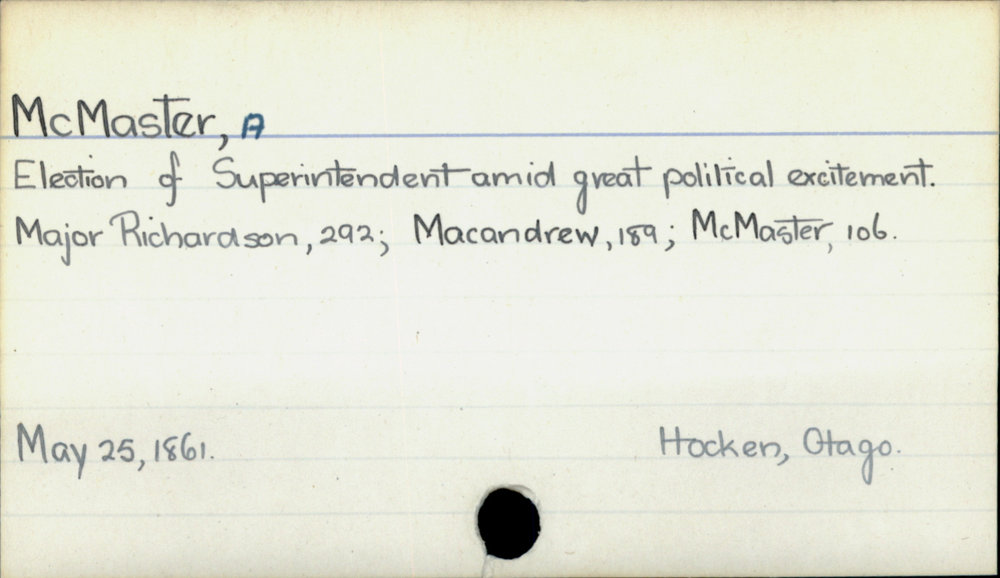 McMaster, A
Election of Superintendent amid great political excitement.
Major Richardson, 292; Macandrew, 189; McMaster, 106.
May 25, 1861.
Hocken, Otago.